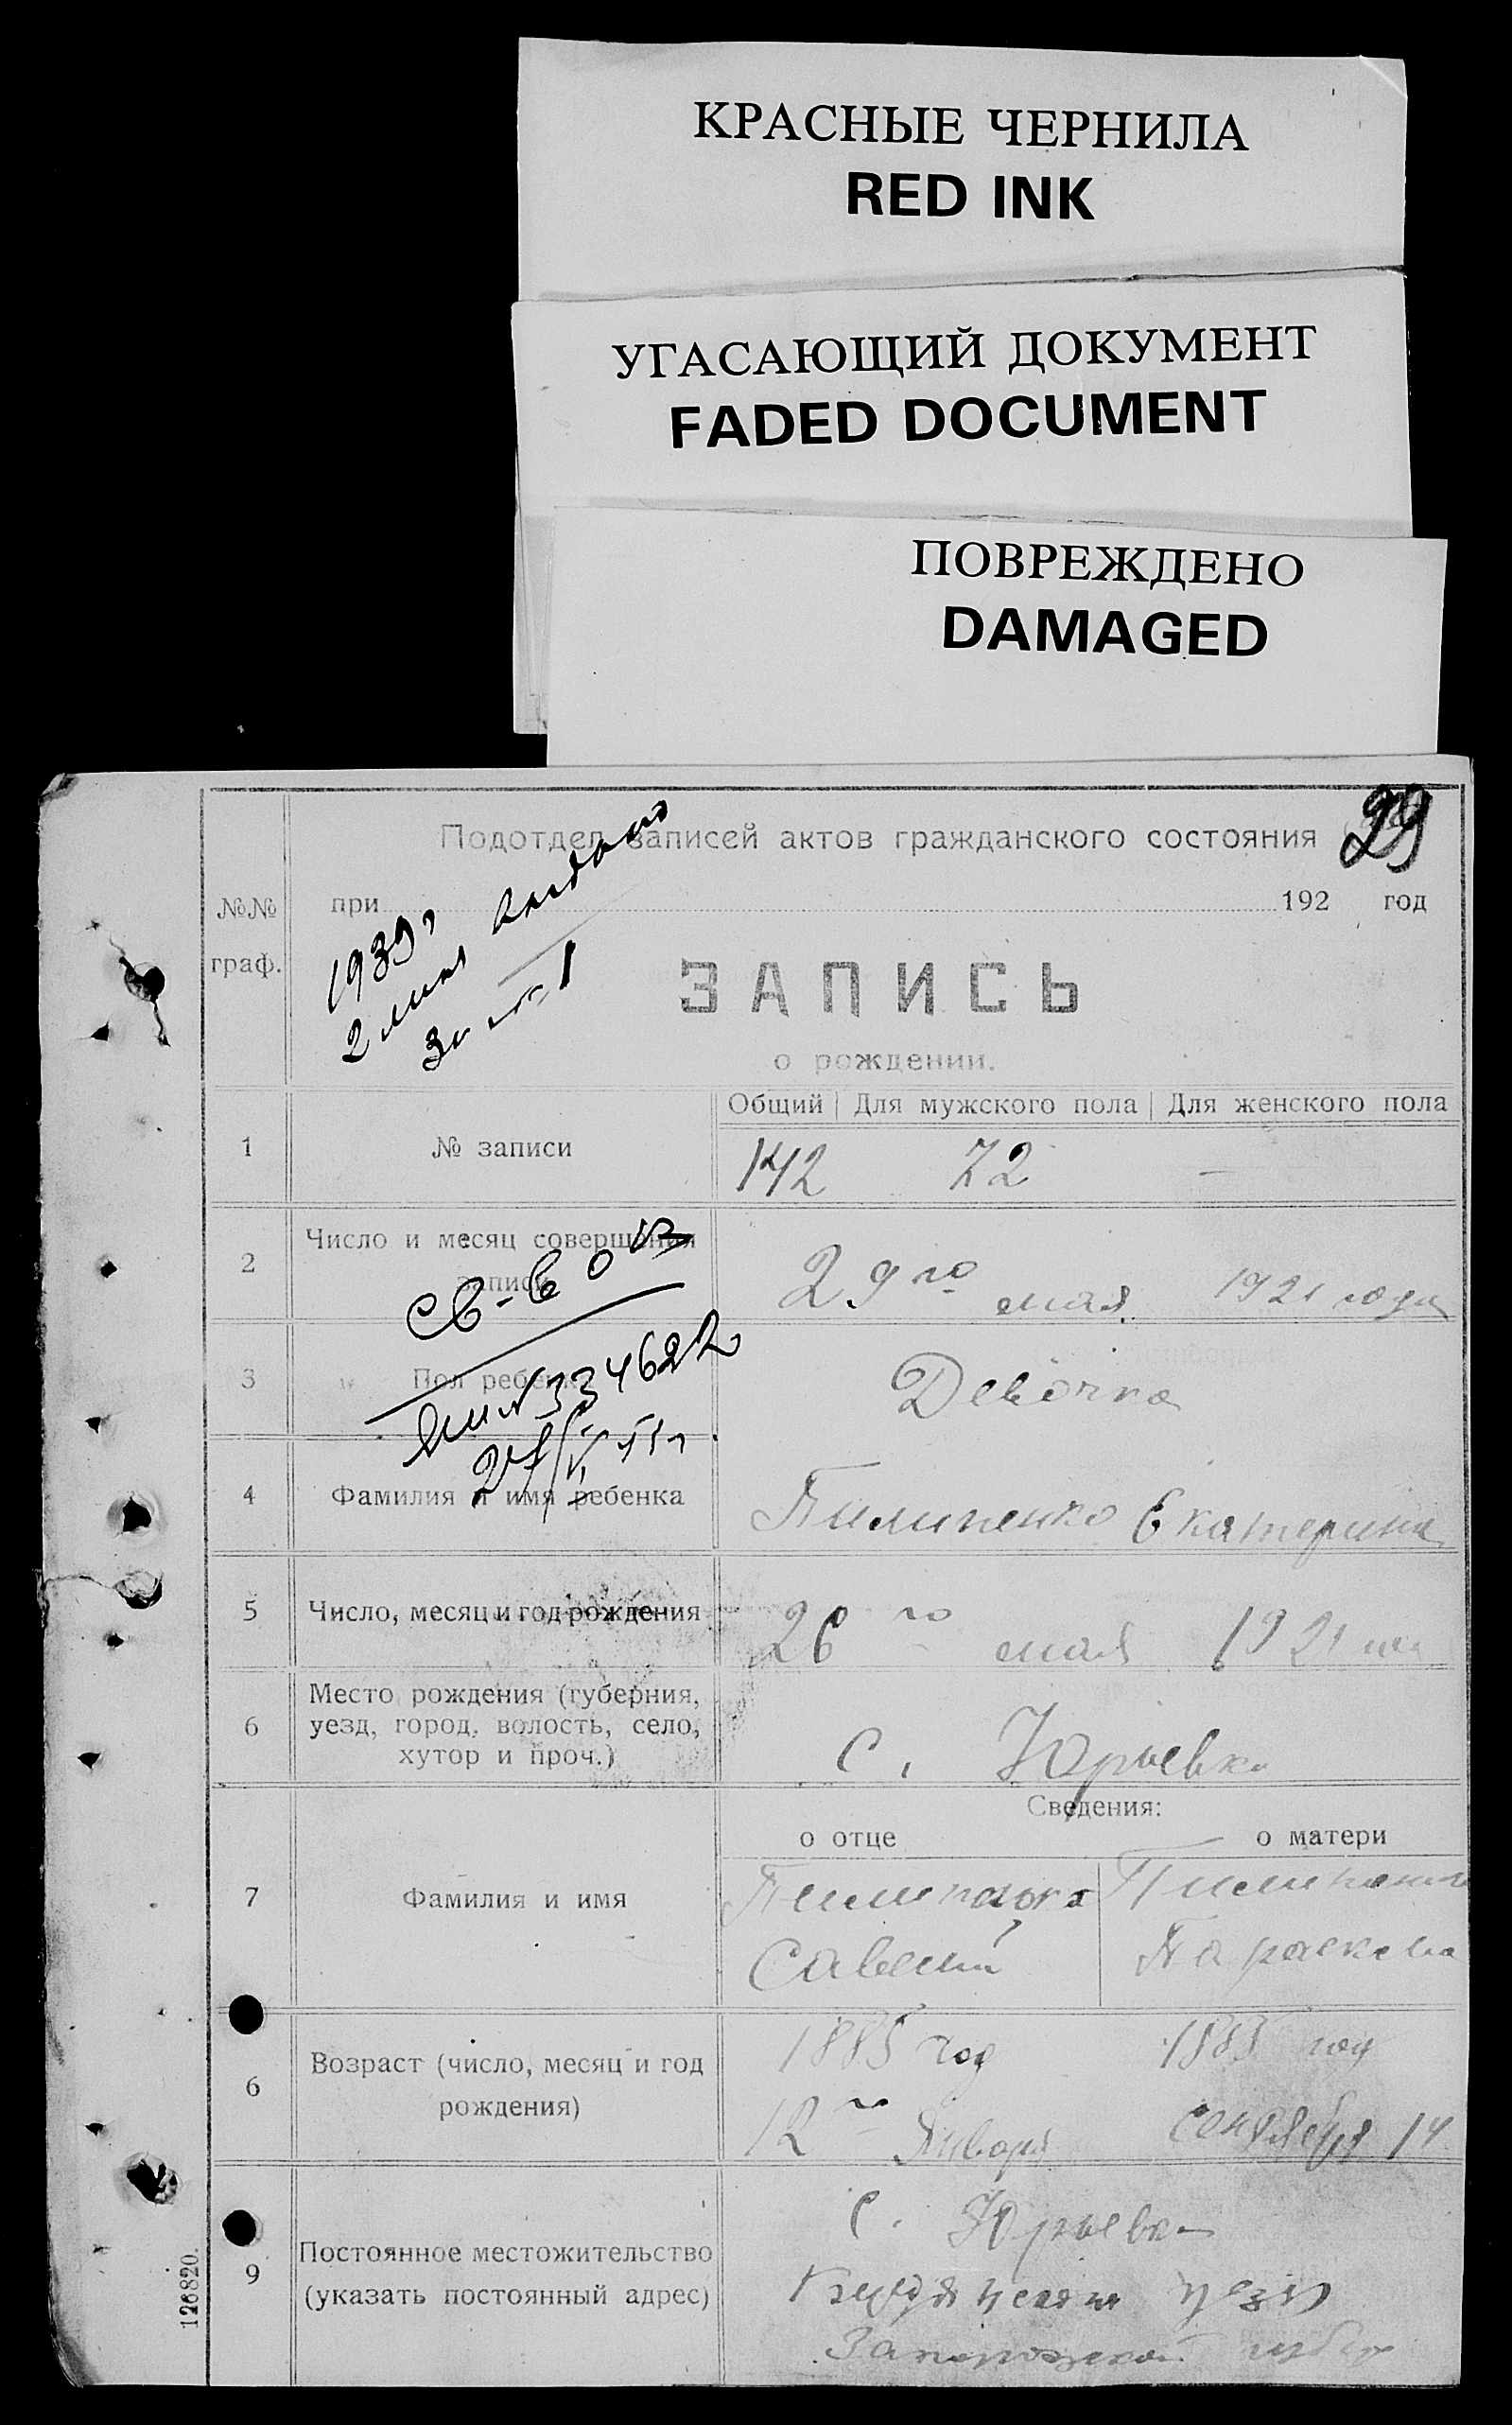 КРАСНЫЕ ЧЕРНИЛА
RED INK
УГАСАЮЩИЙ ДОКУМЕНТ
FADED DOCUMENT
ПОВРЕЖДЕНО
DAMAGED
29
Подотдел записей актов гражданского состояния
№№ граф.
при 192 год
1939,
2 мая выдано
За № 1
ЗАПИСЬ
о рождении.
Общий Для мужского пола Для женского пола
1 № записи 142 72 —
2 Число и месяц совершения записи 29го мая 1921 года
св-во
№ 334622
3 Пол ребенка Девочка
4 Фамилия и имя ребенка Пилипенко Екатерина
5 Число, месяц и год рождения 26го мая 1921
6 Место рождения (губерния, уезд, город, волость, село, хутор и проч.) С. Юрьевка
Сведения:
о отце о матери
7 Фамилия и имя Пилипенко Савелий Пилипенко Параскева
6 Возраст (число, месяц и год рождения) 1885 год 12го Января 1885 год Сентября 14
9 Постоянное местожительство (указать постоянный адрес) С. Юрьевка
уезд
Запорожской губ
126820.